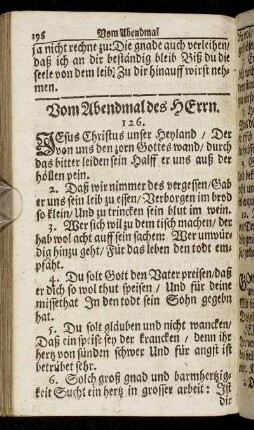 196 Vom Abendmal
ja nicht rechne zu: Die gnade auch verleihen/
daß ich an dir beständig bleib Biß du die
seele von dem leib/ Zu dir hinauff wirst neh-
men.
Vom Abendmal des HErrn.
126.
JEsus Christus unser Heyland / Der
von uns den zorn Gottes wand/ durch
das bitter leiden sein Halff er uns auß der
höllen pein.
2. Daß wir nimmer des vergessen/ Gab
er uns sein leib zu essen/ Verborgen im brod
so klein/ Und zu trincken sein blut im wein.
3. Wer sich wil zu dem tisch machen/ der
hab wol acht auff sein sachen: Wer unwür-
dig hinzu geht/ Für das leben den todt em-
pfäht.
4. Du solt Gott den Vater preisen/ daß
er dich so wol thut speisen / Und für deine
missethat In den todt sein Sohn gegebn
hat.
5. Du solt gläuben und nicht wancken/
Daß ein speise sey der krancken / denn ihr
hertz von sünden schwer Und für angst ist
betrübet sehr.
6. Solch groß gnad und barmhertzig-
keit Sucht ein hertz in grosser arbeit: Ist
dir